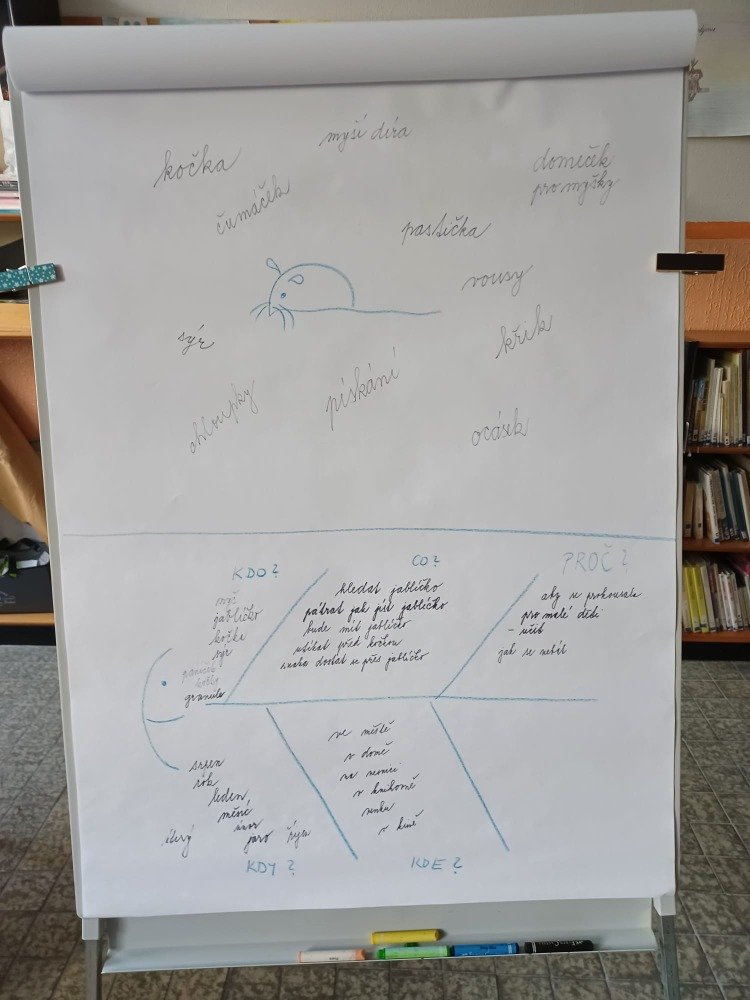 myší díra
kočka
domeček
pro myšky
čumáček
pastička
vousy
sýr
křik
pískání
chloupky
ocásek
KDO?
myš
jablíčko
kočka
sýr
paníček
kočky
granule
CO?
hledat jablíčko
pátrat jak jíst jablíčko
bude mít jablíčko
utíkat před kočkou
snaha dostat se přes jablíčko
PROČ?
aby se prokousala
pro malé děti
- učit
jak se nebát
srpen
rok
leden
měsíc
únor
úterý
jaro
říjen
KDY?
ve městě
v domě
na vesnici
v knihovně
venku
v kině
KDE?